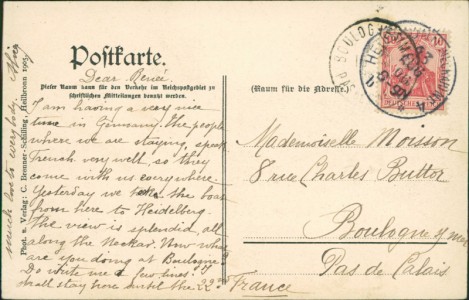 Postkarte.
Dear Renée.
Dieser Raum kann für den Verkehr im Reichspostgebiet zu
schriftlichen Mitteilungen benutzt werden.
(Raum für die Adresse.)
I am having a very nice
time in Germany. The people
where we are staying, speak
French very well, so they
come with us everywhere.
Yesterday we take the boat
from here to Heidelberg.
The view is splendid all
along the Neckar. Now what
are you doing at Boulogne?
Do write me a few lines. I
shall stay here until the 22nd
much love to everybody.
Phot. u. Verlag: C. Benner-Schilling, Heilbronn 1905
Mademoiselle Moisson
8 rue Charles Buttor
Boulogne s/ mer
Pas de Calais
France